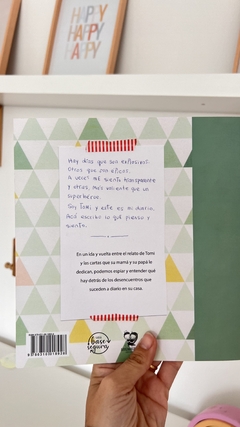 HAPPY
HAPPY
HAPPY
Hay días que son explosivos.
Otros que son
A veces me siento transparente
y otras, más valiente que un
superhéroe.
Soy Toni, y este es mi diario.
Acá escribo lo que pienso y
siento.
En un ida y vuelta entre el relato de Toni
y las cartas que su mamá y su papá le
dedican, podemos espiar y entender qué
hay detrás de los desencuentros que
suceden a diario en su casa.
base
segura